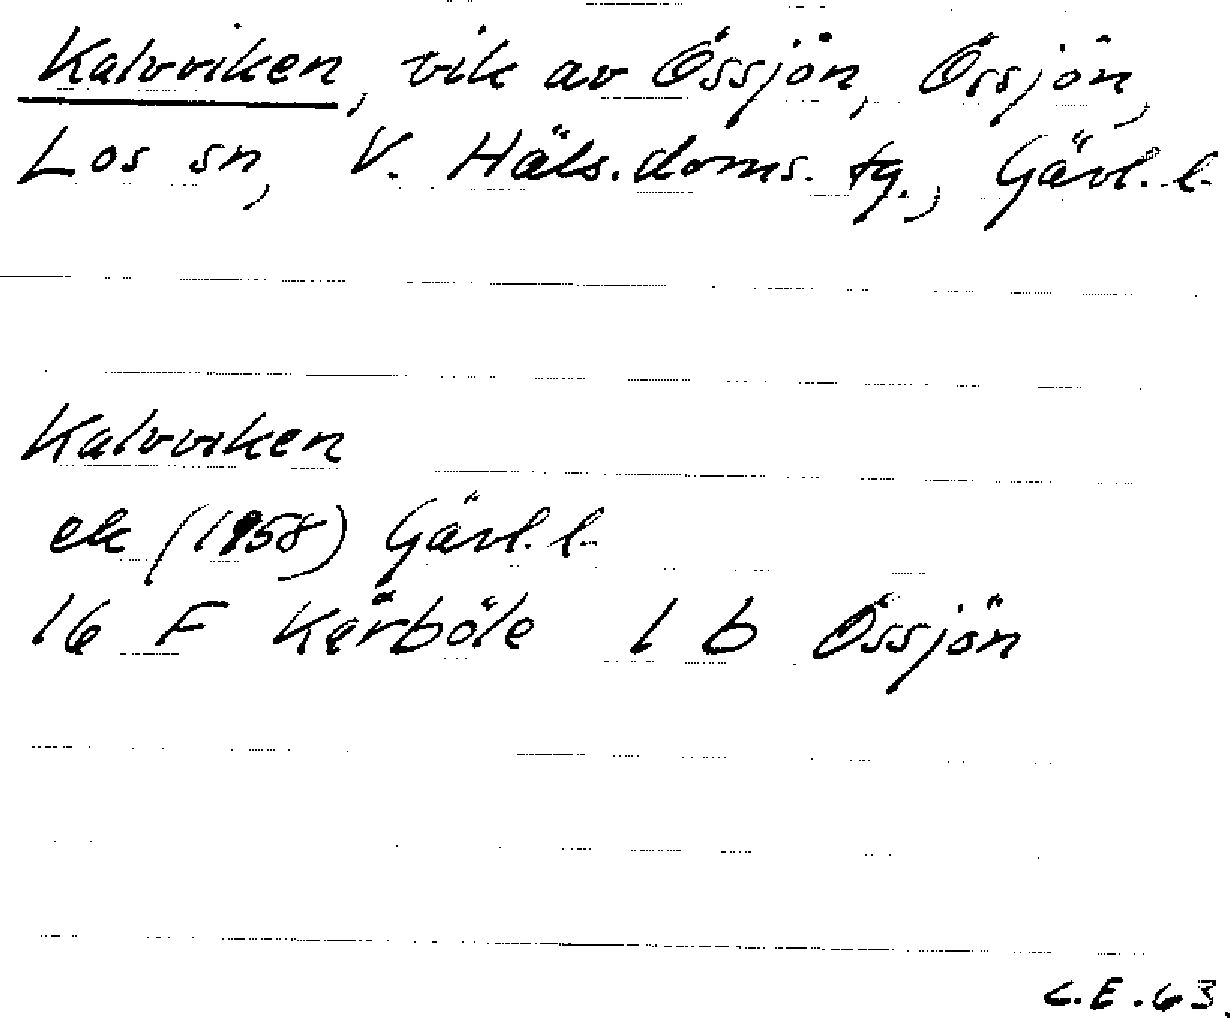 Kalvviken, vik av Össjön, Össjön,
Los sn, V. Häls. doms. tg., Gävl. l.
Kalvviken
ek (1958) Gävl. l.
16 F Kårböle 1 b Össjön
C.E. 63.